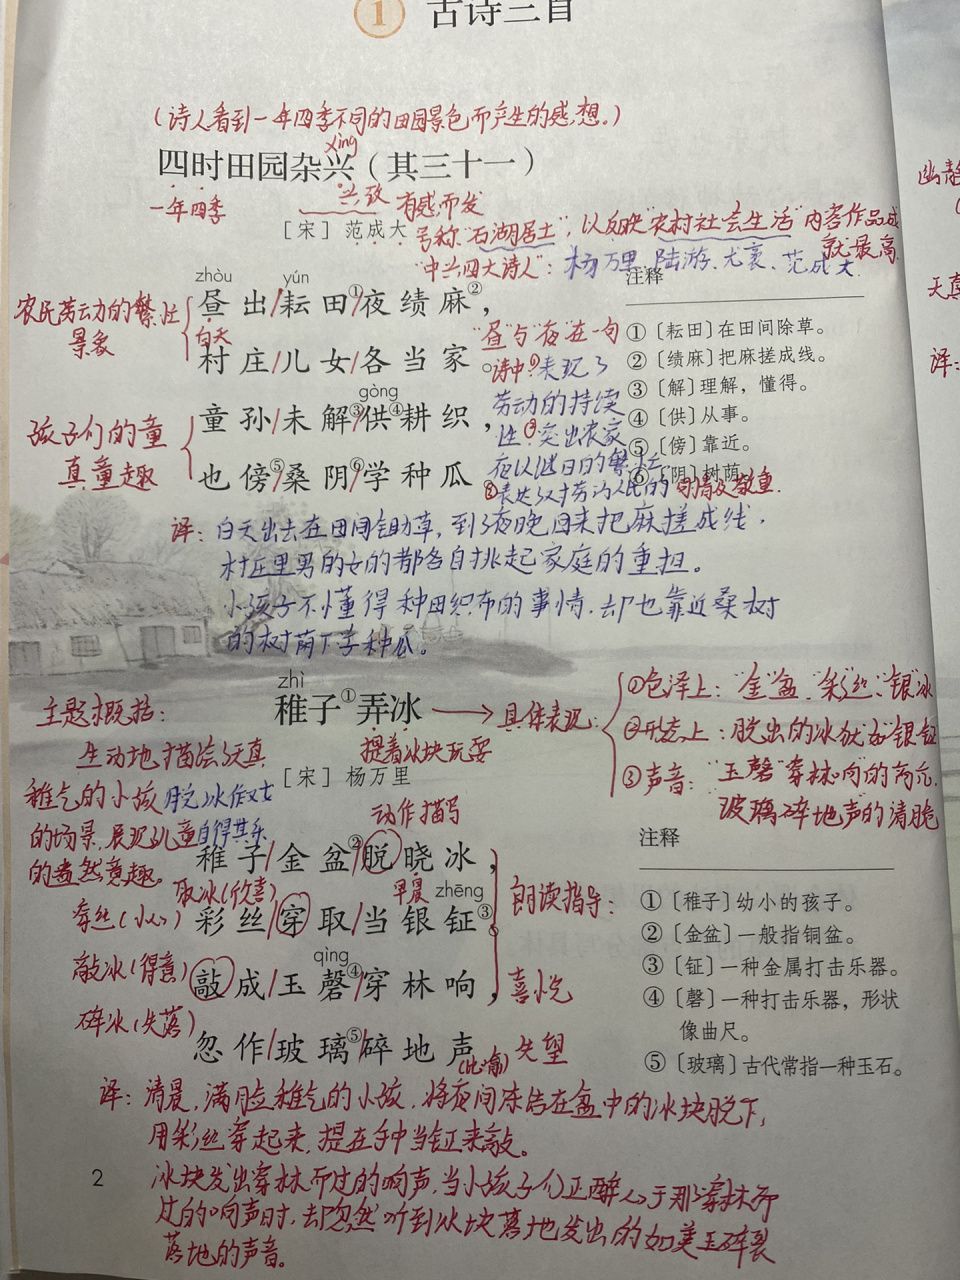 ① 古诗三首
(诗人看到一年四季不同的田园景色而产生的感想。)
xìng
四时田园杂兴（其三十一）
一年四季
兴致 有感而发
[宋] 范成大
号称"石湖居士", 以反映"农村社会生活"内容作品成
就最高
"中兴四大诗人": 杨万里、陆游、尤袤、范成大
zhòu yún
昼出/耘田①/夜绩麻②，
白天
村庄/儿女/各当家。
农民劳动力的繁忙
景象
gòng
童孙/未解③/供④耕织，
也傍⑤/桑阴⑥/学种瓜。
孩子们的童
真童趣
"昼"与"夜"在一句
诗中①表现了
劳动的持续
性②突出农家
夜以继日的繁忙
③表达对劳动人民的同情及敬重.
注释
①〔耘田〕在田间除草。
②〔绩麻〕把麻搓成线。
③〔解〕理解，懂得。
④〔供〕从事。
⑤〔傍〕靠近。
⑥〔阴〕树荫。
译: 白天出去在田间锄草, 到了夜晚回来把麻搓成线,
村庄里男的女的都各自挑起家庭的重担。
小孩子不懂得种田织布的事情, 却也靠近桑树
的树荫下学种瓜。
zhì
稚子①弄冰
提着冰块玩耍
具体表现:
①色泽上: "金"盆、"彩"丝、"银"冰
②形态上: 脱出的冰犹如"银钲"
③声音: "玉磬"穿林响"的高亢,
玻璃碎地声的清脆
主题概括:
生动地描绘了天真
稚气的小孩脱冰作女
的场景, 展现儿童自得其乐
的盎然意趣。
[宋] 杨万里
动作描写
稚子/金盆②/脱晓冰，
早晨 zhēng
彩丝/穿取/当银钲③。
qìng
敲成/玉磬④/穿林响，
忽作/玻璃⑤/碎地声
(比喻)
取冰(欣喜)
穿丝(小心)
敲冰(得意)
碎冰(失落)
朗读指导:
喜悦
失望
注释
①〔稚子〕幼小的孩子。
②〔金盆〕一般指铜盆。
③〔钲〕一种金属打击乐器。
④〔磬〕一种打击乐器，形状
像曲尺。
⑤〔玻璃〕古代常指一种玉石。
译: 清晨, 满脸稚气的小孩, 将夜间冻结在盆中的冰块脱下,
用彩丝穿起来, 提在手中当钲来敲。
冰块发出穿林而过的响声, 当小孩子们正醉心于那穿林而
过的响声时, 却忽然听到冰块落地发出的如美玉碎裂
落地的声音。
2
幽静
天真
译: